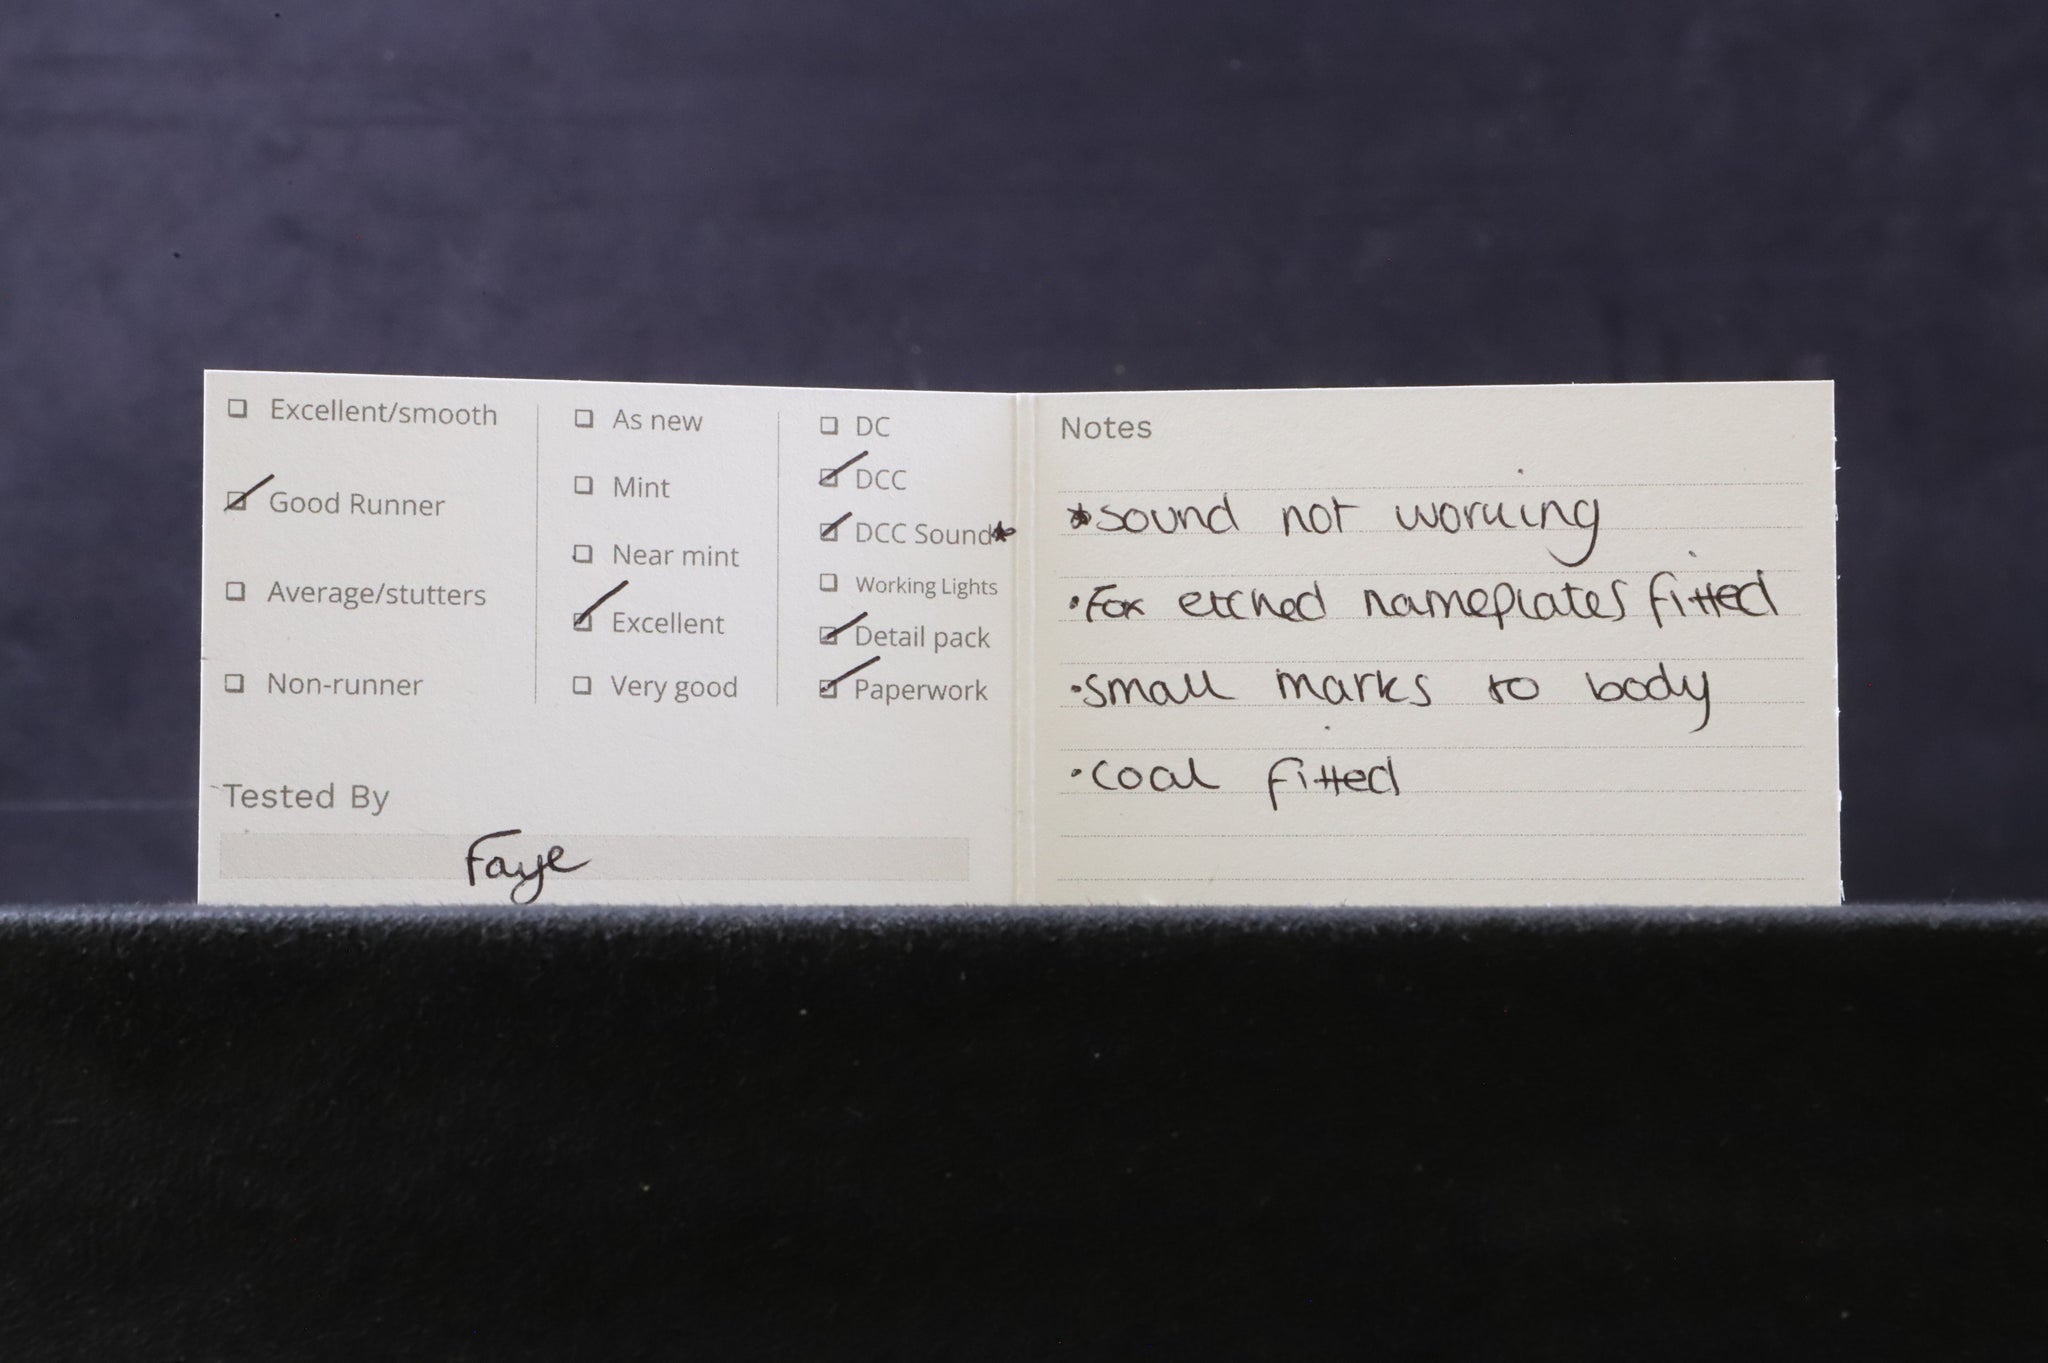 Excellent/smooth
Good Runner
Average/stutters
Non-runner
As new
Mint
Near mint
Excellent
Very good
DC
DCC
DCC Sound*
Working Lights
Detail pack
Paperwork
Tested By
Faye
Notes
*sound not working
•Fox etched nameplates fitted
•small marks to body
•coal fitted